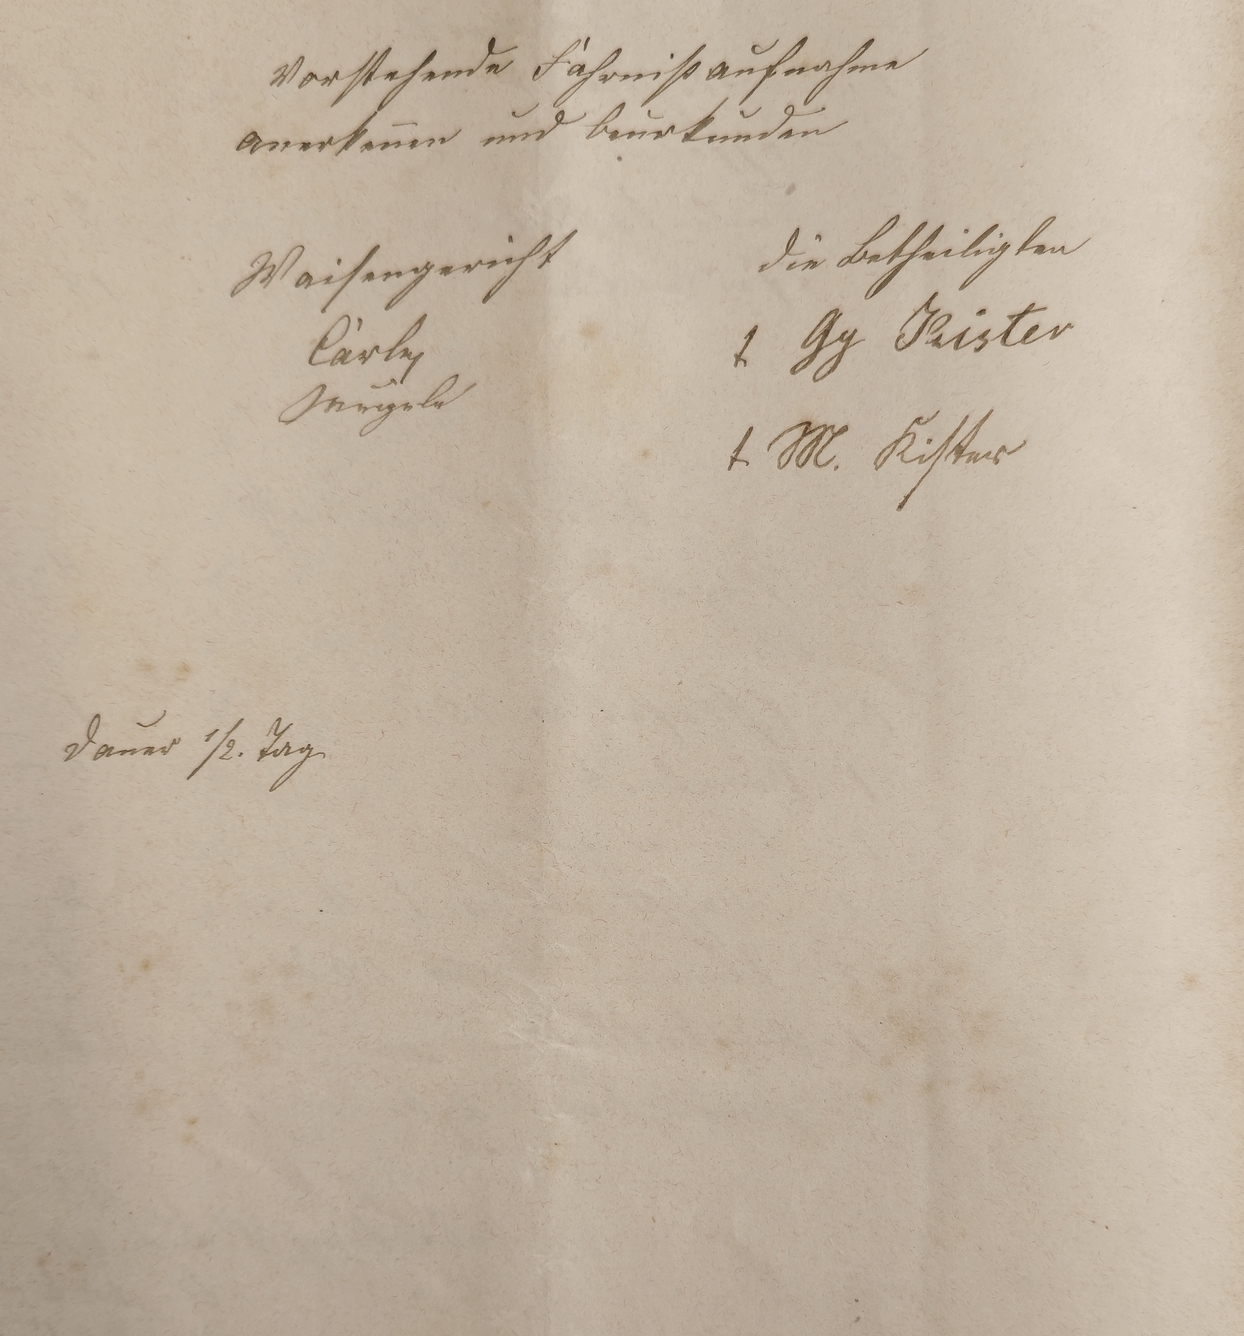 Vorstehende Fährnißaufnahme
anerkeñen und beurkunden
Waisengericht
die Betheiligten
Carle
t Gg Kister
t M. Kister
Dauer 1/2. Tag